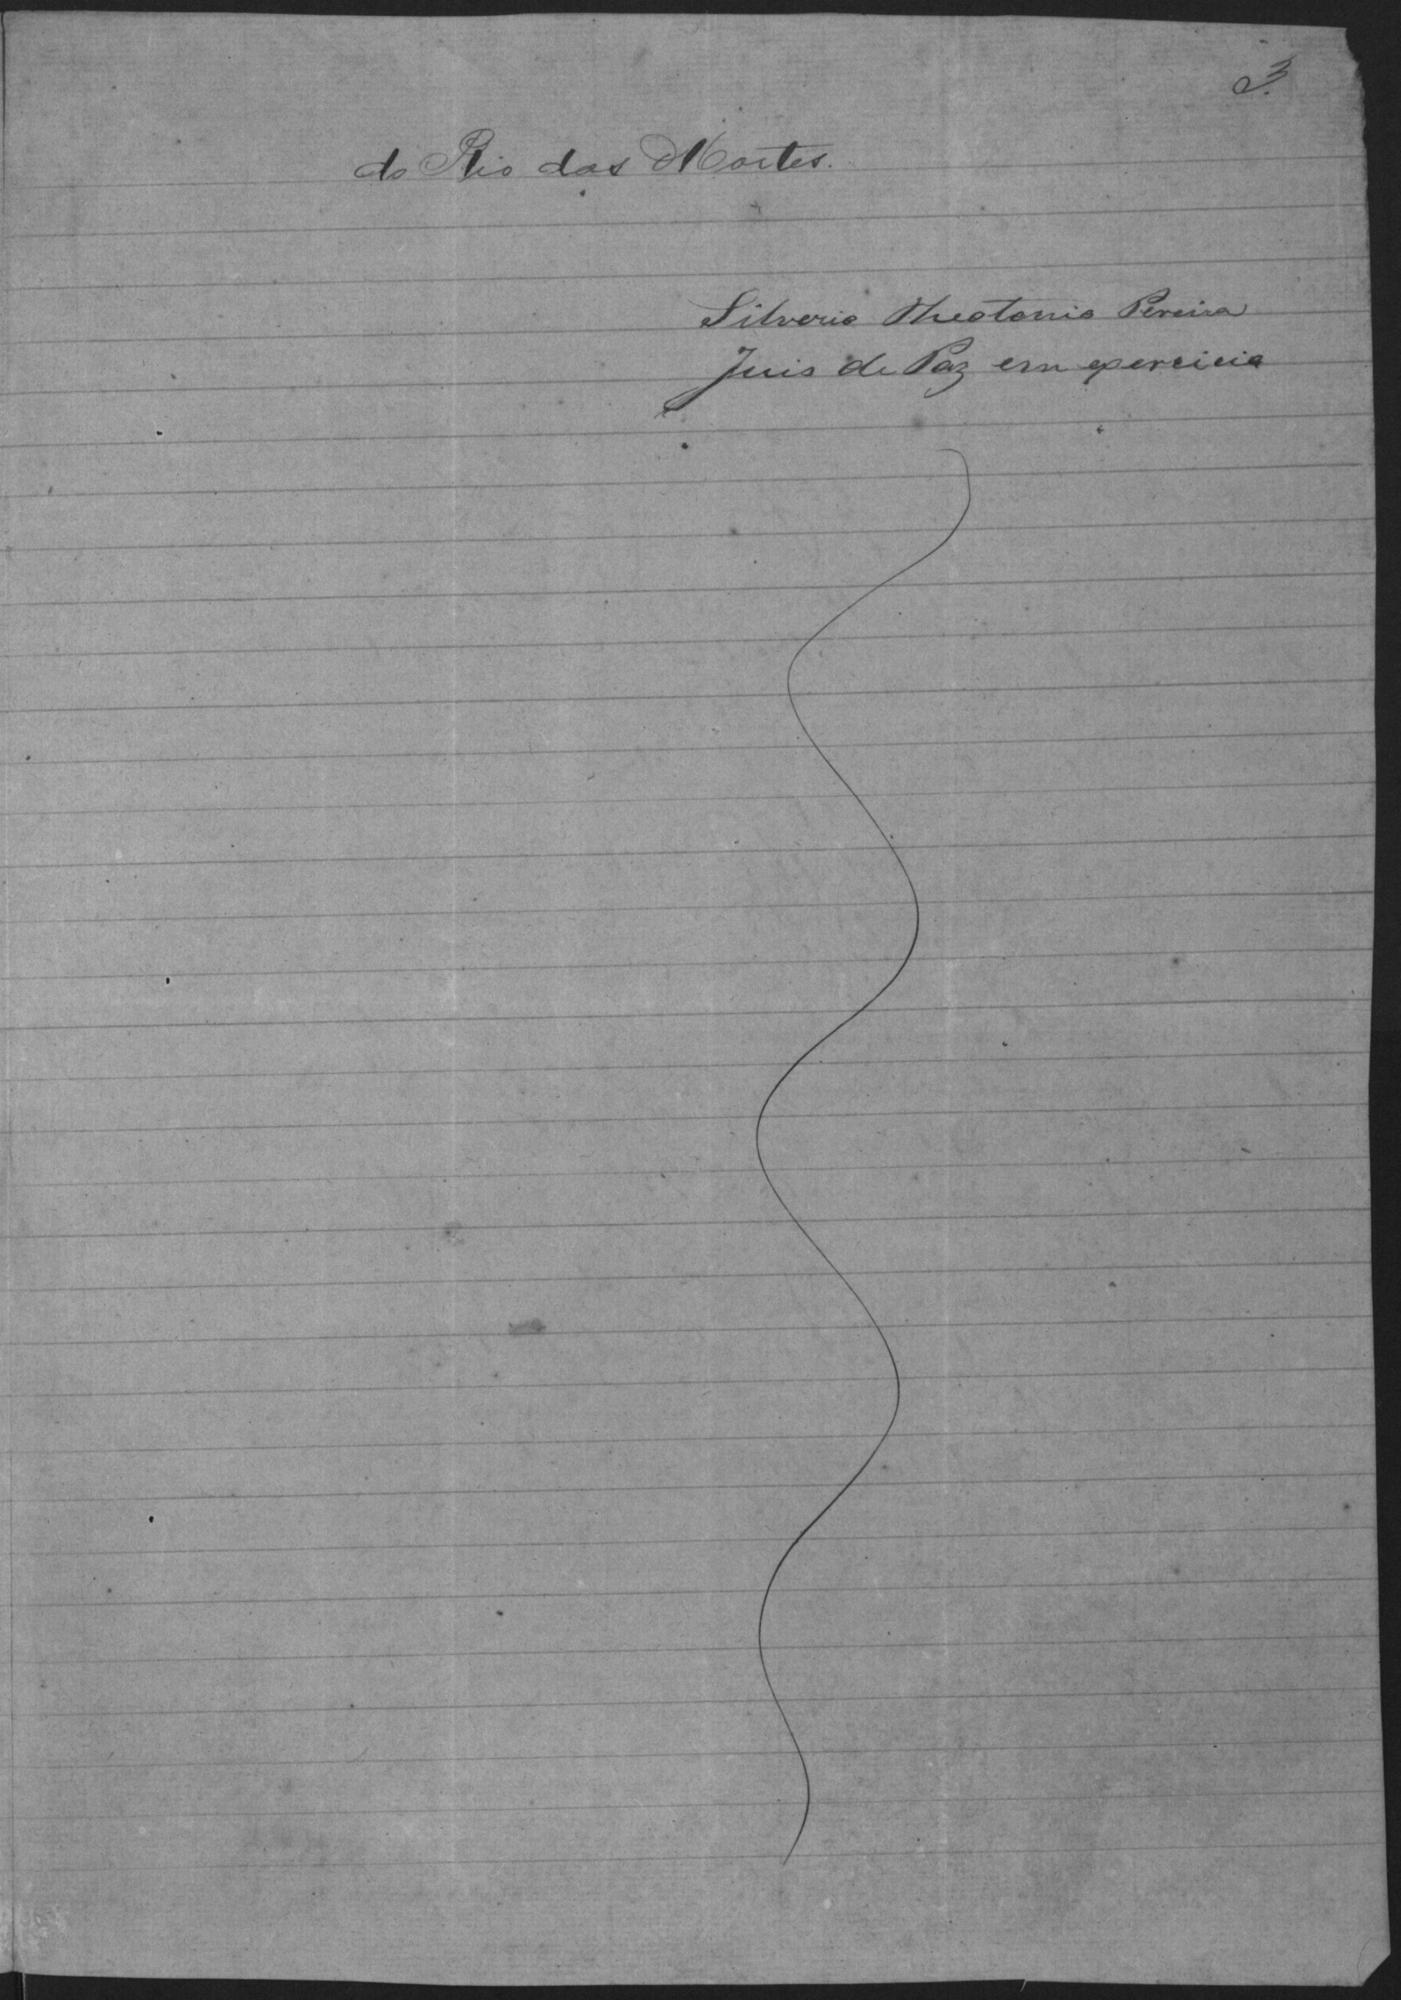 3.
do Rio das Mortes.
Silverio Theotonio Pereira
Juis de Paz em exercicio